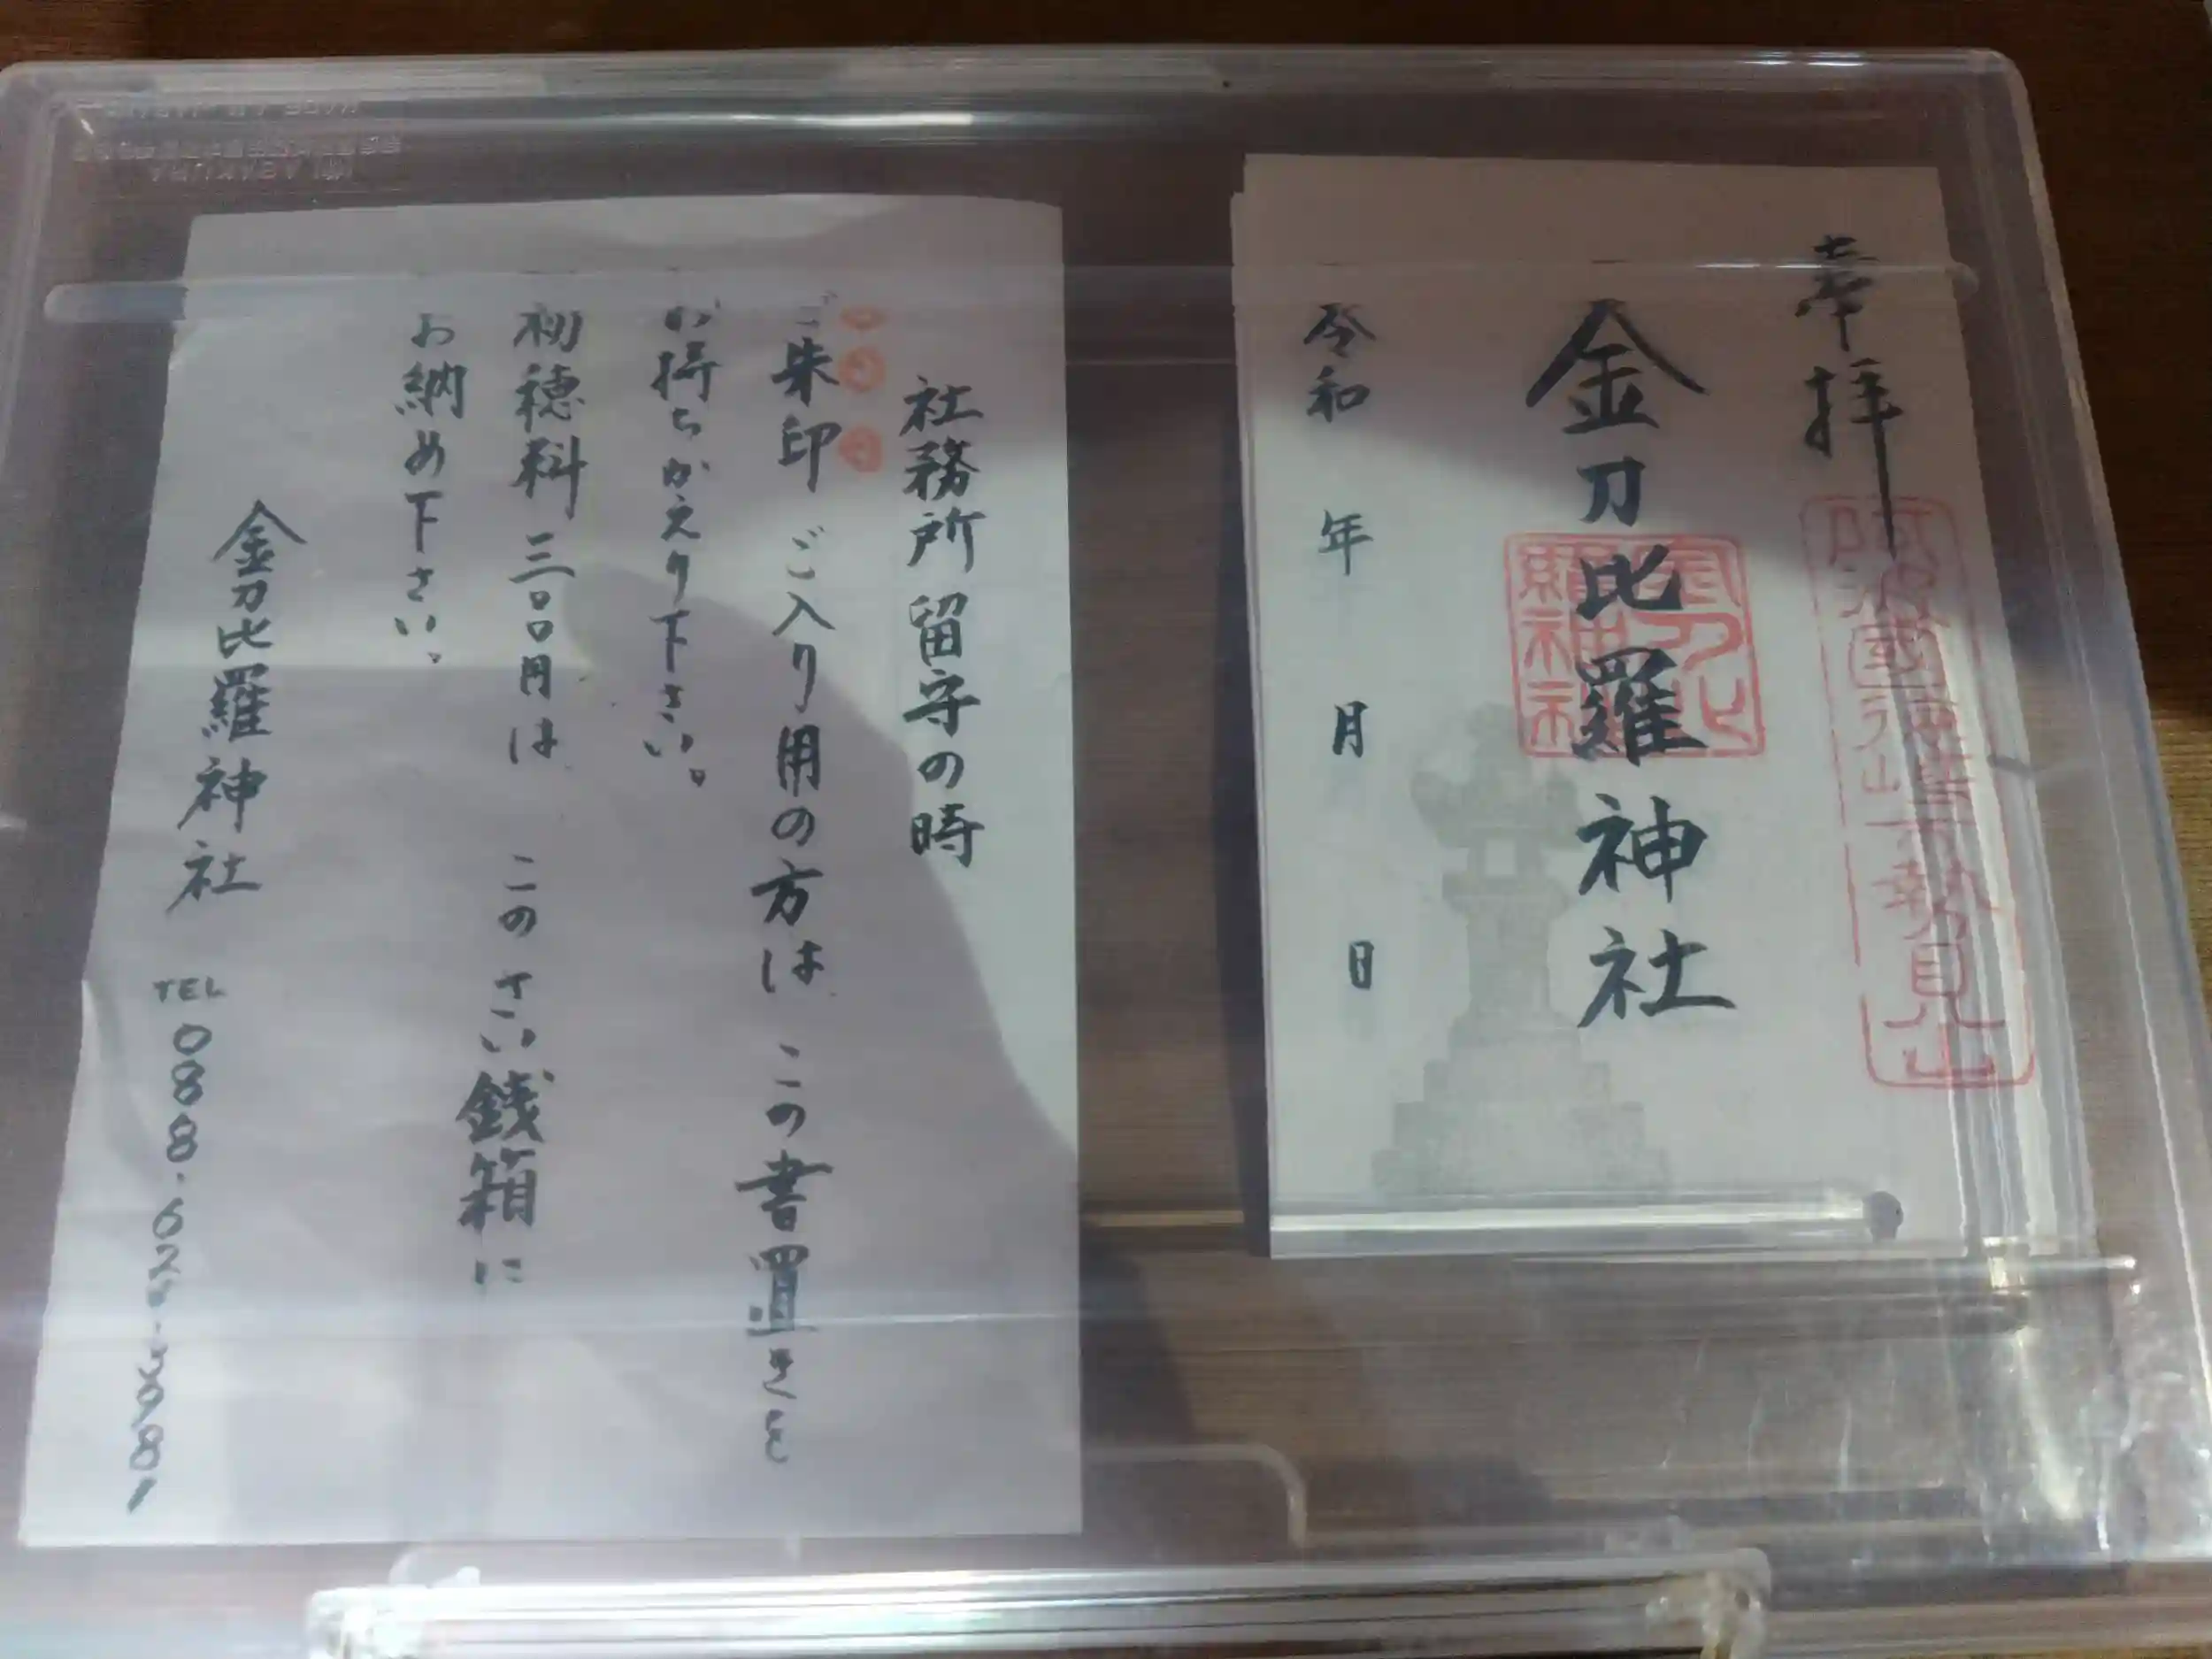 奉拝
阿波國徳嶋市勢見山
金刀比羅神社
金刀比羅神社
令和 年 月 日
社務所留守の時
ご朱印 ご入り用の方は この書置きを
お持ちかえり下さい。
初穂料三〇〇円は このさい銭箱に
お納め下さい。
金刀比羅神社 TEL 088-622-3981
ASAKURA